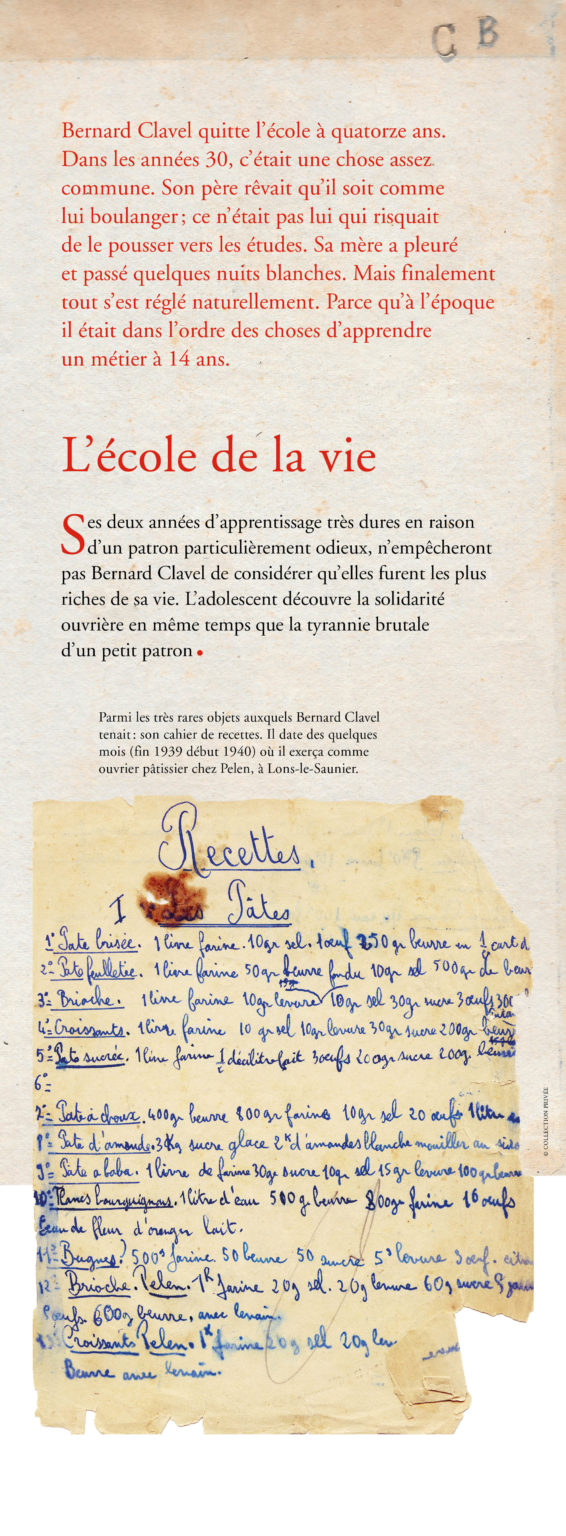 C B
Bernard Clavel quitte l’école à quatorze ans.
Dans les années 30, c’était une chose assez
commune. Son père rêvait qu’il soit comme
lui boulanger ; ce n’était pas lui qui risquait
de le pousser vers les études. Sa mère a pleuré
et passé quelques nuits blanches. Mais finalement
tout s’est réglé naturellement. Parce qu’à l’époque
il était dans l’ordre des choses d’apprendre
un métier à 14 ans.
L’école de la vie
Ses deux années d’apprentissage très dures en raison
d’un patron particulièrement odieux, n’empêcheront
pas Bernard Clavel de considérer qu’elles furent les plus
riches de sa vie. L’adolescent découvre la solidarité
ouvrière en même temps que la tyrannie brutale
d’un petit patron •
Parmi les très rares objets auxquels Bernard Clavel
tenait : son cahier de recettes. Il date des quelques
mois (fin 1939 début 1940) où il exerça comme
ouvrier pâtissier chez Pelen, à Lons-le-Saunier.
Recettes.
I Les Pâtes
1° Pate brisée. 1 livre farine. 10gr sel. 1 oeuf 250gr beurre un 1/4 cart d
2° Pate feuilletée. 1 livre farine 50gr beurre fondu 10gr sel 500gr de beur
3° Brioche. 1 livre farine 10gr levure 10gr sel 30gr sucre 3 oeufs 300
4° Croissants. 1 livre farine 10 gr sel 10gr levure 30gr sucre 200gr beur
5° Pate sucrée. 1 livre farine 1 décilitre lait 3 oeufs 200gr sucre 200g beurre
6°
Pate à choux. 400gr beurre 800gr farine 10gr sel 20 oeufs 1 litre
Pate d'amande. 3Kg sucre glace 2K d'amandes blanche mouiller au
9° Pâte a baba. 1 livre de farine 30gr sucre 10gr sel 15gr levure 100gr beurre
10° Flancs bourguignons. 1 litre d'eau 500g beurre 800gr farine 16 oeufs
Eau de fleur d'oranger lait.
11° Bugnes? 500g farine. 50 beurre 50 sucre 5g levure 3 oeuf. citron
12° Brioche. Pelen. 1K farine 20g sel. 20g levure 60g sucre
oeufs 600g beurre, avec levain.
13° Croissants Pelen. 1K farine 20g sel 20g lev.
Beurre avec levain.
© COLLECTION PRIVÉE